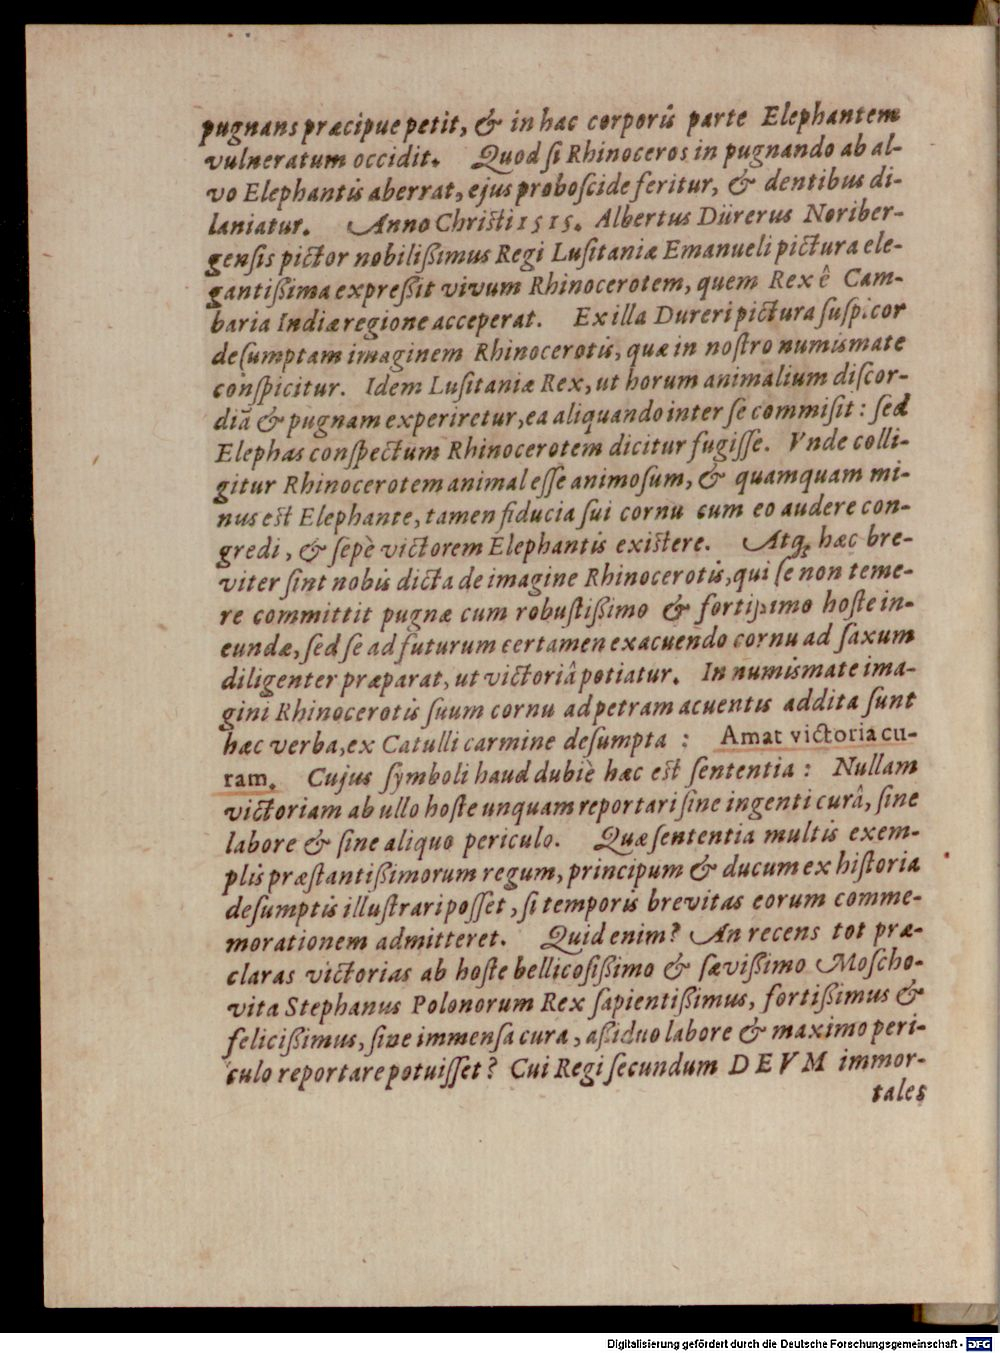 pugnans præcipue petit, & in hac corporis parte Elephantem
vulneratum occidit. Quod ſi Rhinoceros in pugnando ab al-
vo Elephantis aberrat, ejus proboſcide feritur, & dentibus di-
laniatur. Anno Chriſti 1515. Albertus Dürerus Noriber-
genſis pictor nobilißimus Regi Luſitaniæ Emanueli pictura ele-
gantißima expreßit vivum Rhinocerotem, quem Rex ê Cam-
baria Indiæ regione acceperat. Ex illa Dureri pictura ſuſpicor
deſumptam imaginem Rhinocerotis, quæ in noſtro numismate
conſpicitur. Idem Luſitaniæ Rex, ut horum animalium diſcor-
diã & pugnam experiretur, ea aliquando inter ſe commiſit : ſed
Elephas conſpectum Rhinocerotem dicitur fugiſſe. Vnde colli-
gitur Rhinocerotem animal eſſe animoſum, & quamquam mi-
nus eſt Elephante, tamen fiducia ſui cornu cum eo audere con-
gredi, & ſepè victorem Elephantis exiſtere. Atq; hæc bre-
viter ſint nobis dicta de imagine Rhinocerotis, qui ſe non teme-
re committit pugnæ cum robuſtißimo & fortißimo hoſte in-
eundæ, ſed ſe ad futurum certamen exacuendo cornu ad ſaxum
diligenter præparat, ut victoriâ potiatur. In numismate ima-
gini Rhinocerotis ſuum cornu ad petram acuentis addita ſunt
hæc verba, ex Catulli carmine deſumpta : Amat victoria cu-
ram. Cujus ſymboli haud dubiè hæc eſt ſententia : Nullam
victoriam ab ullo hoſte unquam reportari ſine ingenti curâ, ſine
labore & ſine aliquo periculo. Quæ ſententia multis exem-
plis præſtantißimorum regum, principum & ducum ex hiſtoria
deſumptis illuſtrari poſſet, ſi temporis brevitas eorum comme-
morationem admitteret. Quid enim? An recens tot præ-
claras victorias ab hoſte bellicoſißimo & ſævißimo Moſcho-
vita Stephanus Polonorum Rex ſapientißimus, fortißimus &
felicißimus, ſine immenſa cura, aßiduo labore & maximo peri-
culo reportare potuiſſet? Cui Regi ſecundum DEVM immor-
tales
Digitalisierung gefördert durch die Deutsche Forschungsgemeinschaft - DFG